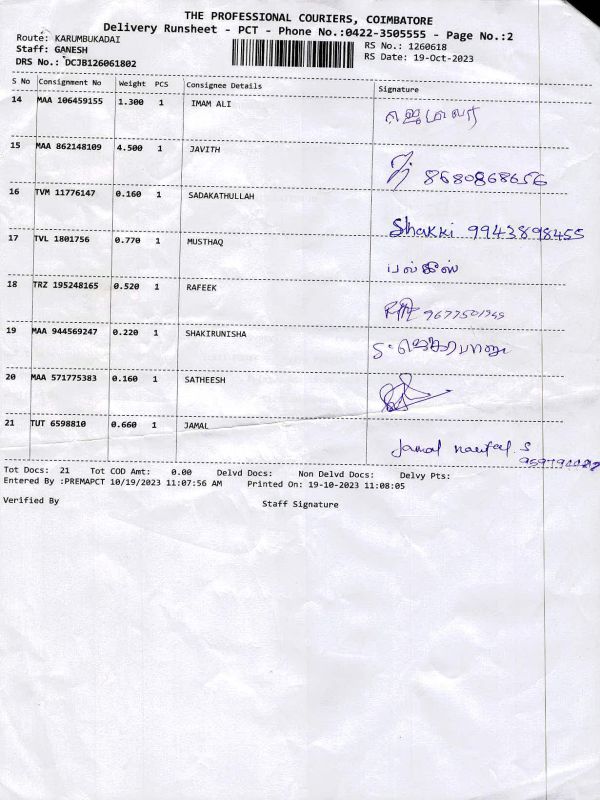 THE PROFESSIONAL COURIERS, COIMBATORE
Delivery Runsheet - PCT - Phone No.:0422-3505555 - Page No.:2
Route: KARUMBUKADAI
RS No.: 1260618
Staff: GANESH
RS Date: 19-Oct-2023
DRS No.: DCJB126061802
S No Consignment No Weight PCS Consignee Details Signature
14 MAA 106459155 1.300 1 IMAM ALI
15 MAA 862148109 4.500 1 JAVITH
8680868656
16 TVM 11776147 0.160 1 SADAKATHULLAH
Shakki 9943898455
17 TVL 1801756 0.770 1 MUSTHAQ
பல்கீஸ்
18 TRZ 195248165 0.520 1 RAFEEK
19 MAA 944569247 0.220 1 SHAKIRUNISHA
20 MAA 571775383 0.160 1 SATHEESH
21 TUT 6598810 0.660 1 JAMAL
Jamal S
Tot Docs: 21 Tot COD Amt: 0.00 Delvd Docs: Non Delvd Docs: Delvy Pts:
Entered By :PREMAPCT 10/19/2023 11:07:56 AM Printed On: 19-10-2023 11:08:05
Verified By Staff Signature